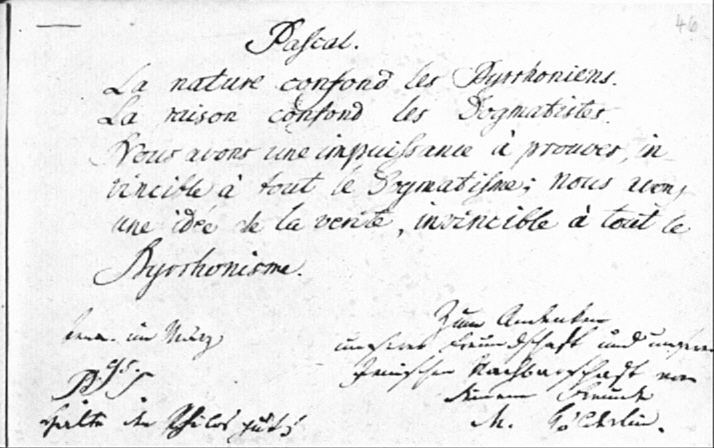 46
Pascal.
La nature confond les Pyrrhoniens.
La raison confond les Dogmatistes.
Nous avons une impuissance à prouver, in-
vincible à tout le Dogmatisme; nous avons
une idée de la verité, invincible à tout le
Pyrrhonisme.
Jena. im März
Zum Andenken
unserer Freundschaft und unserer
Jenaischen Nachbarschaft von
Deinem Freunde
M. Hölderlin.